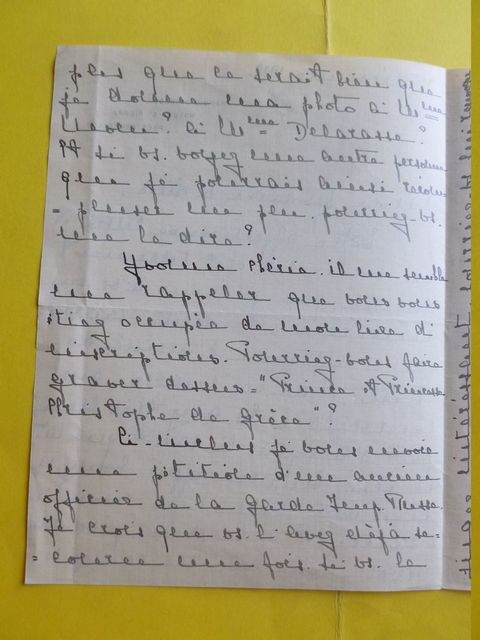 plus que ce serait bien que
je donne une photo à M me
à M me Delarasse?
Et si vs. voyez une autre personne
que je pourrais ainsi récom=
=penser un peu. pourriez-vs.
me le dire?
Yvonne chérie. il me semble
me rappeler que vous vous
étiez occupée de mon livre d'
inscriptions. Pourriez-vous faire
graver dessus = "Prince et Princesse
Christophe de Grèce"?
Ci-inclus je vous envoie
une pétition d'un ancien
officier de la garde Imp. Russe.
Je crois que vs. l'avez déjà se=
=courue une fois. Si vs. le